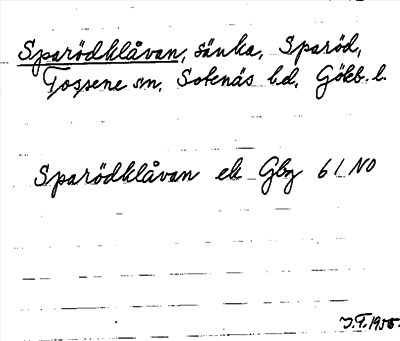 Sparödklåvan, sänka, Sparöd,
Tossene sn, Sotenäs hd, Göteb. l.
Sparödklåvan ek Gbg 61 NO
J.F. 1955.